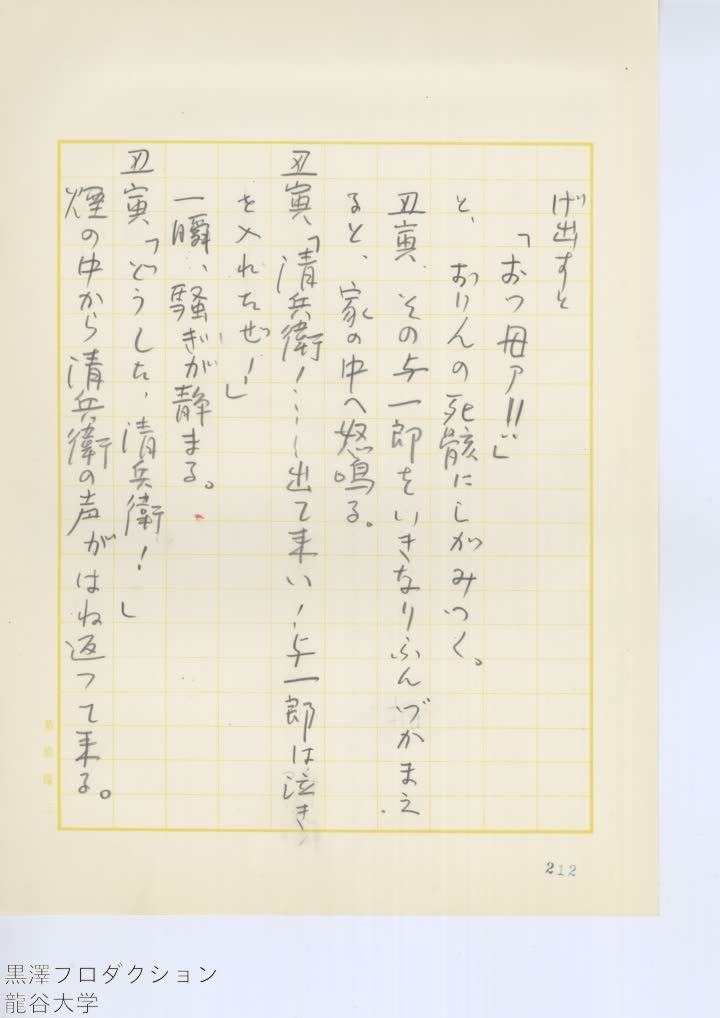 げ出すと
「おつ母ァ!!」
と、おりんの死骸にしがみつく。
丑寅、その与一郎をいきなりふんづかまえ
ると、家の中へ怒鳴る。
丑寅、「清兵衛!……出て来い!与一郎は泣き
を入れたぜ!」
一瞬、騒ぎが静まる。
丑寅、「どうした、清兵衛!」
煙の中から清兵衛の声がはね返つて来る。
212
黒澤プロダクション
龍谷大学